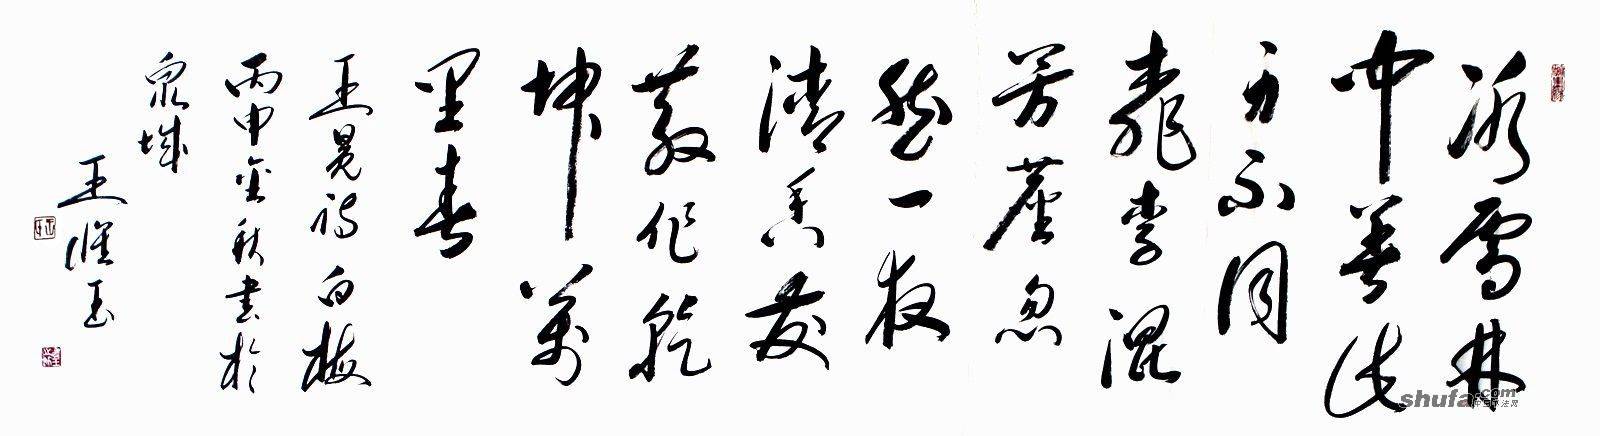 冰雪林
中著此
身不同
桃李混
芳塵忽
然一夜
清香發
散作乾
坤萬
里春
王冕詩白梅
丙申金秋書於
泉城
王 玉
shufa.com